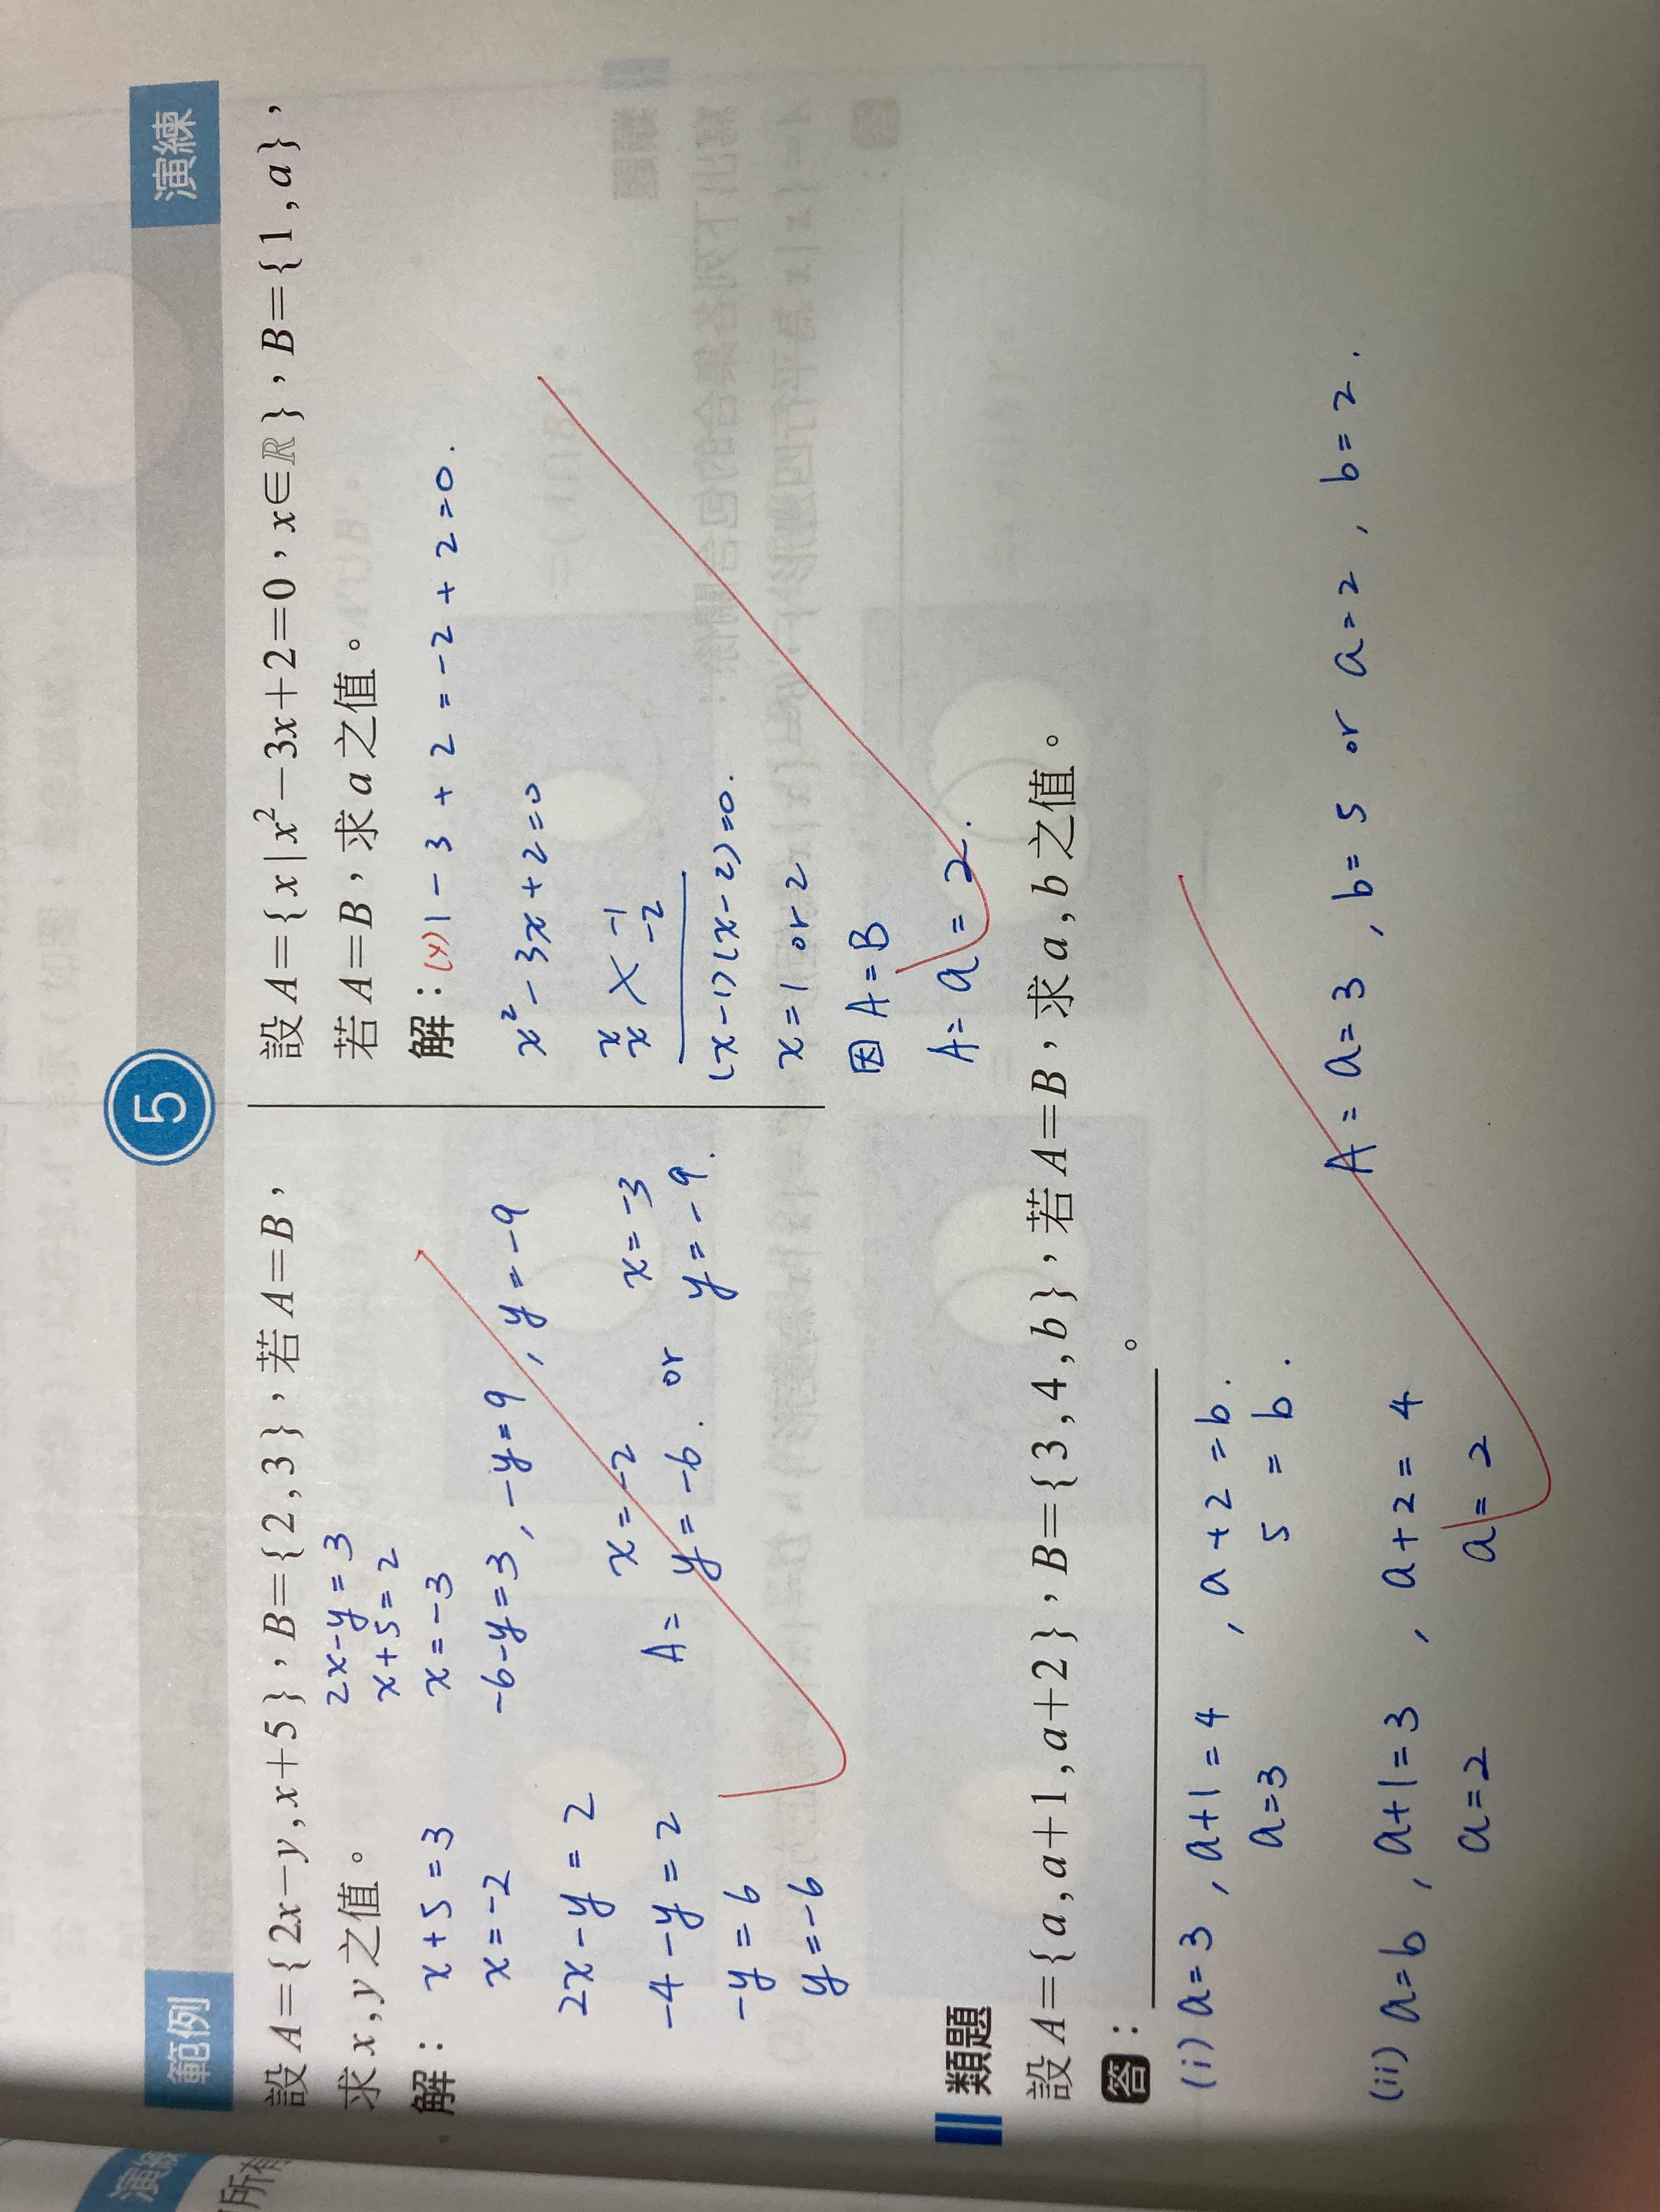 範例
5
演練
設A={2x-y,x+5},B={2,3},若A=B,
求x,y之值。
2x-y=3
x+5=2
解:
x+5=3
x=-3
x=-2
-6-y=3, -y=9, y=-9
2x-y=2
-4-y=2
-y=6
y=-6
x=-2 x=-3
A= y=-6. or y=-9.
設A={x|x²-3x+2=0,x∈ℝ},B={1,a},
若A=B,求a之值。
解:(x) 1-3+2=-2+2=0.
x²-3x+2=0
x -1
x -2
(x-1)(x-2)=0.
x=1 or 2
因A=B
A= a=2.
類題
設A={a,a+1,a+2},B={3,4,b},若A=B,求a,b之值。
答: 。
(i) a=3, a+1=4, a+2=b.
a=3 5=b.
(ii) a=b, a+1=3, a+2=4
a=2 a=2
A= a=3, b=5 or a=2, b=2.
演練
所有